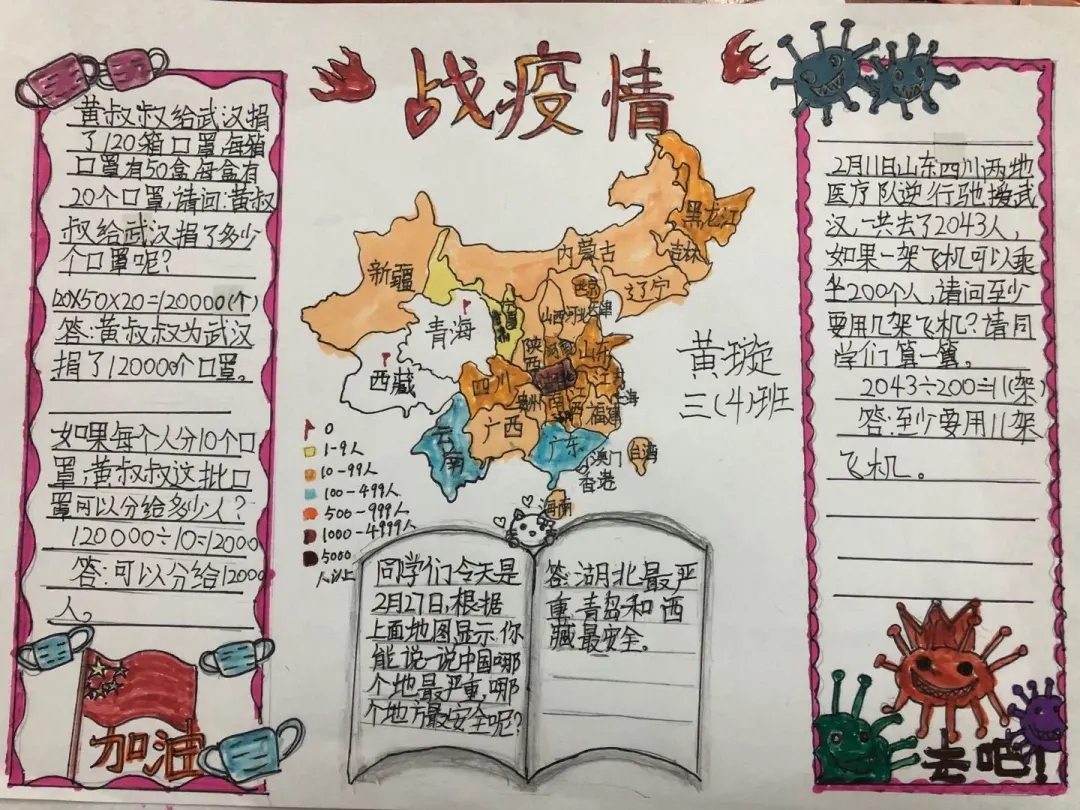 战疫情
黄叔叔给武汉捐
了120箱口罩,每箱
口罩有50盒,每盒有
20个口罩,请问:黄叔
叔给武汉捐了多少
个口罩呢?
120×50×20=120000(个)
答:黄叔叔为武汉
捐了120000个口罩。
如果每个人分10个口
罩,黄叔叔这批口
罩可以分给多少人?
120000÷10=12000
答:可以分给12000
人。
加油
黑龙江
吉林
内蒙古
辽宁
新疆
青海
西藏
山西
河北
天津
陕西
山东
四川
广西
福建
云南
广东
台湾
澳门
香港
海南
0
1-9人
10-99人
100-499人
500-999人
1000-4999人
5000
人以上
黄璇
三(4)班
同学们今天是
2月27日,根据
上面地图显示,你
能说一说中国哪
个地最严重,哪
个地方最安全呢?
答:湖北最严
重,青岛和西
藏最安全。
2月11日山东四川两地
医疗队逆行驰援武
汉,一共去了2043人,
如果一架飞机可以乘
坐200个人,请问至少
要用几架飞机?请同
学们算一算。
2043÷200=11(架)
答:至少要用11架
飞机。
去吧!